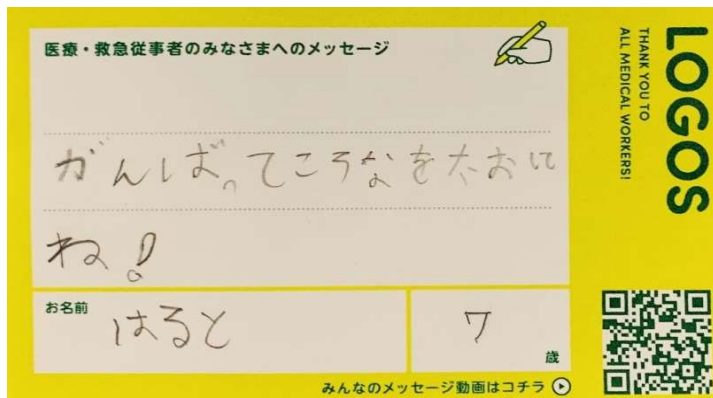 医療・救急従事者のみなさまへのメッセージ
がんばってころなを太おして
ね!
お名前
はると
7
歳
みんなのメッセージ動画はコチラ
LOGOS
THANK YOU TO
ALL MEDICAL WORKERS!